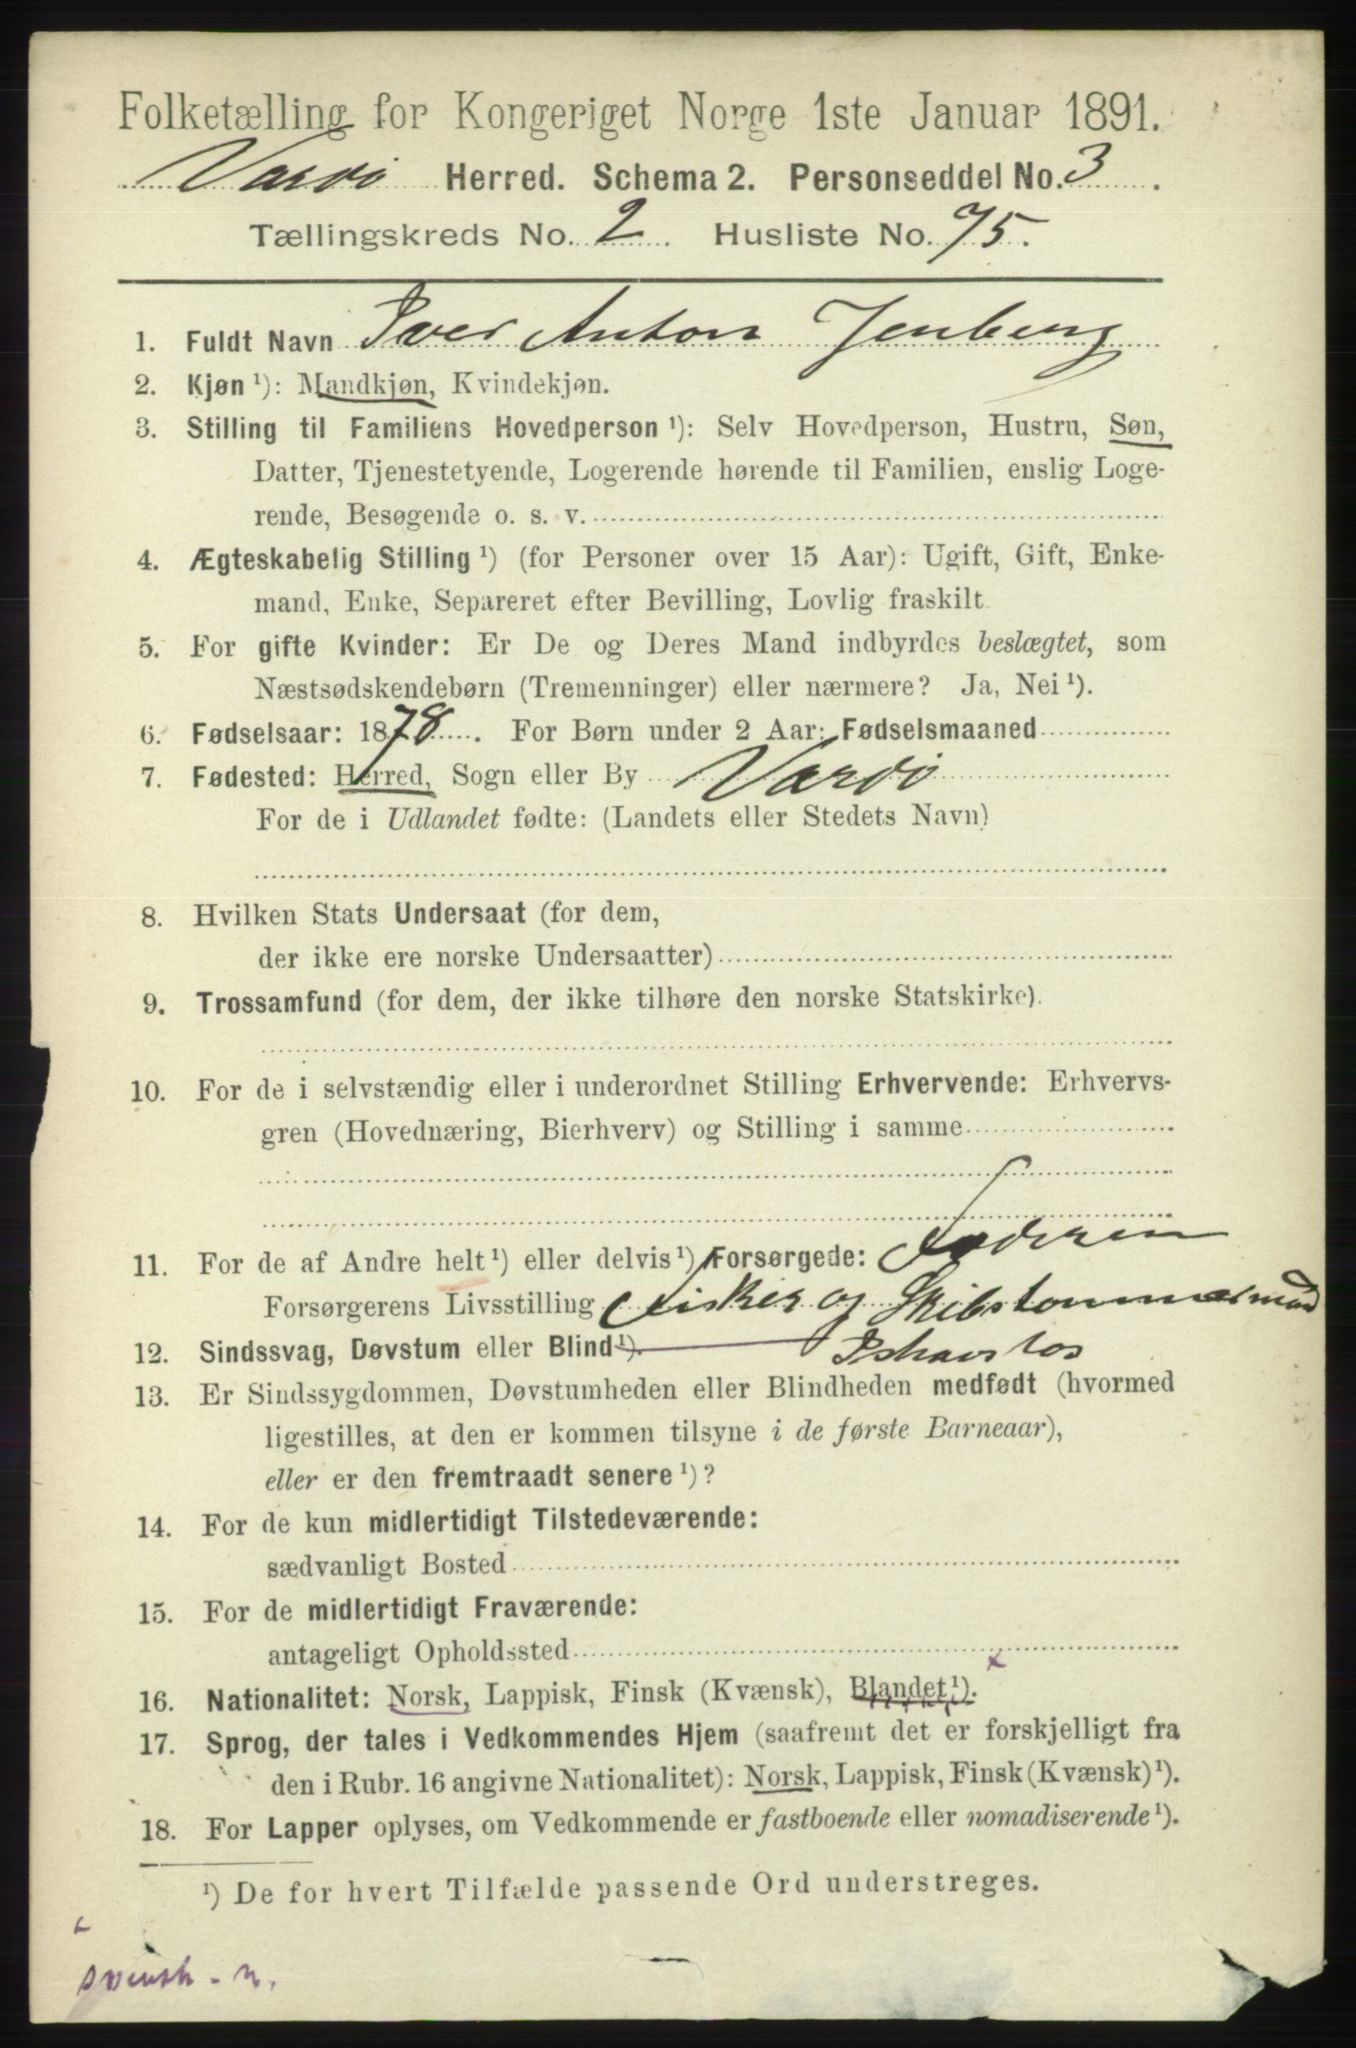 Folketælling for Kongeriget Norge 1ste Januar 1891.
Vardø Herred. Schema 2. Personseddel No. 3.
Tællingskreds No. 2. Husliste No. 75.
1. Fuldt Navn Iver Anton Jenberg
2. Kjøn ¹): Mandkjøn, Kvindekjøn.
3. Stilling til Familiens Hovedperson ¹): Selv Hovedperson, Hustru, Søn,
Datter, Tjenestetyende, Logerende hørende til Familien, enslig Loge-
rende, Besøgende o. s. v.
4. Ægteskabelig Stilling ¹) (for Personer over 15 Aar): Ugift, Gift, Enke-
mand, Enke, Separeret efter Bevilling, Lovlig fraskilt.
5. For gifte Kvinder: Er De og Deres Mand indbyrdes beslægtet, som
Næstsødskendebørn (Tremenninger) eller nærmere? Ja, Nei ¹).
6. Fødselsaar: 1878. For Børn under 2 Aar: Fødselsmaaned
7. Fødested: Herred, Sogn eller By Vardø
For de i Udlandet fødte: (Landets eller Stedets Navn)
8. Hvilken Stats Undersaat (for dem,
der ikke ere norske Undersaatter)
9. Trossamfund (for dem, der ikke tilhøre den norske Statskirke).
10. For de i selvstændig eller i underordnet Stilling Erhvervende: Erhvervs-
gren (Hovednæring, Bierhverv) og Stilling i samme
11. For de af Andre helt ¹) eller delvis ¹) Forsørgede: Faderen
Forsørgerens Livsstilling Fisker og Skibstømmermand
12. Sindssvag, Døvstum eller Blind ¹). Ishavslos
13. Er Sindssygdommen, Døvstumheden eller Blindheden medfødt (hvormed
ligestilles, at den er kommen tilsyne i de første Barneaar),
eller er den fremtraadt senere ¹)?
14. For de kun midlertidigt Tilstedeværende:
sædvanligt Bosted
15. For de midlertidigt Fraværende:
antageligt Opholdssted
16. Nationalitet: Norsk, Lappisk, Finsk (Kvænsk), Blandet ¹). x
17. Sprog, der tales i Vedkommendes Hjem (saafremt det er forskjelligt fra
den i Rubr. 16 angivne Nationalitet): Norsk, Lappisk, Finsk (Kvænsk) ¹).
18. For Lapper oplyses, om Vedkommende er fastboende eller nomadiserende ¹).
¹) De for hvert Tilfælde passende Ord understreges.
svensk - n.